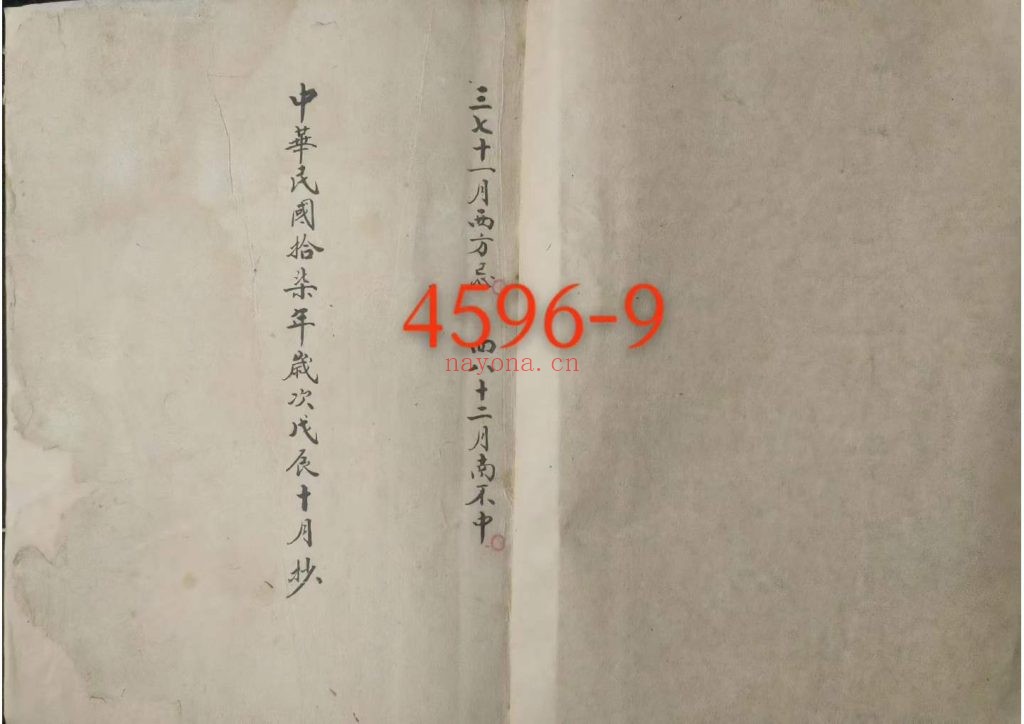 三七十一月西方忌 四八十二月南不中
中華民國拾柒年歲次戊辰十月抄
4596-9
nayona.cn